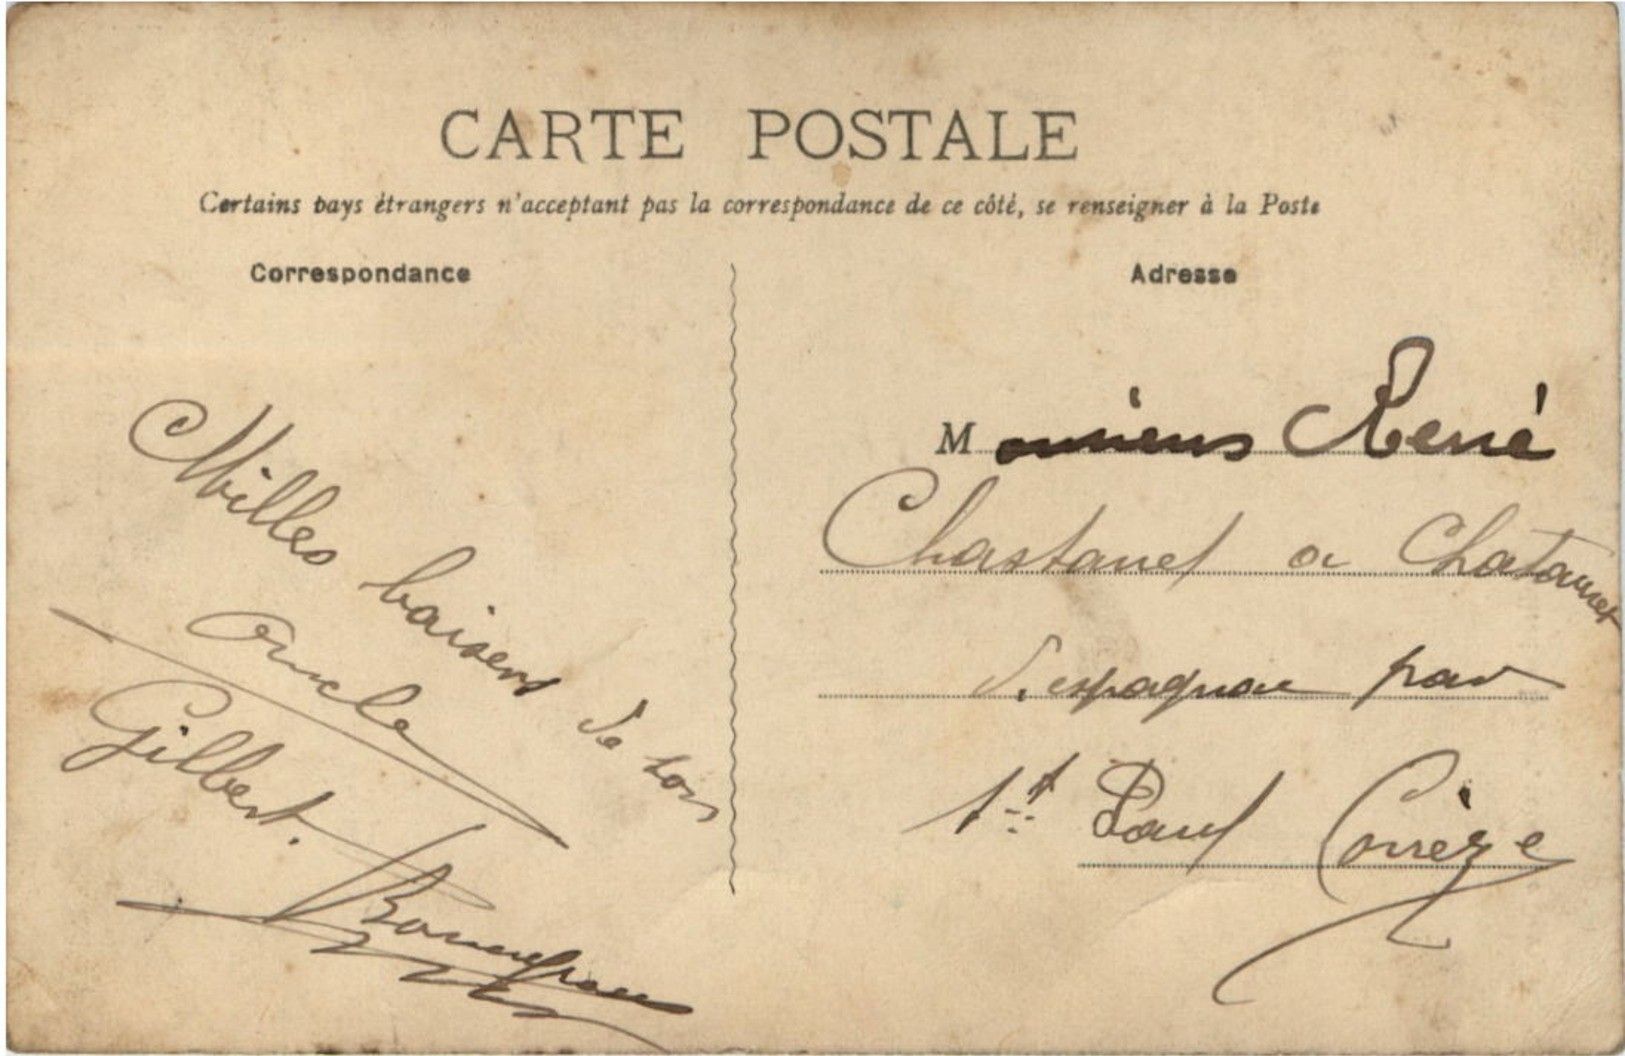 CARTE POSTALE
Certains pays étrangers n'acceptant pas la correspondance de ce côté, se renseigner à la Poste
Correspondance
Adresse
Milles baisers de ton
oncle
Gilbert.
Monsieur René
Chastanet a
par
St Paul Corrèze